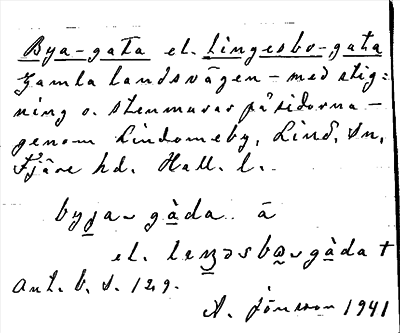 Bya-gata el. Lingesbo-gata
Gamla landsvägen - med stig=
ning o. stenmurar på sidorna -
genom Lindomeby, Lind. sn,
Fjäre hd. Hall. l.
byja- gàda
el. leŋəsbo-gàda
Ant. b. s. 129.
A. Jönsson 1941